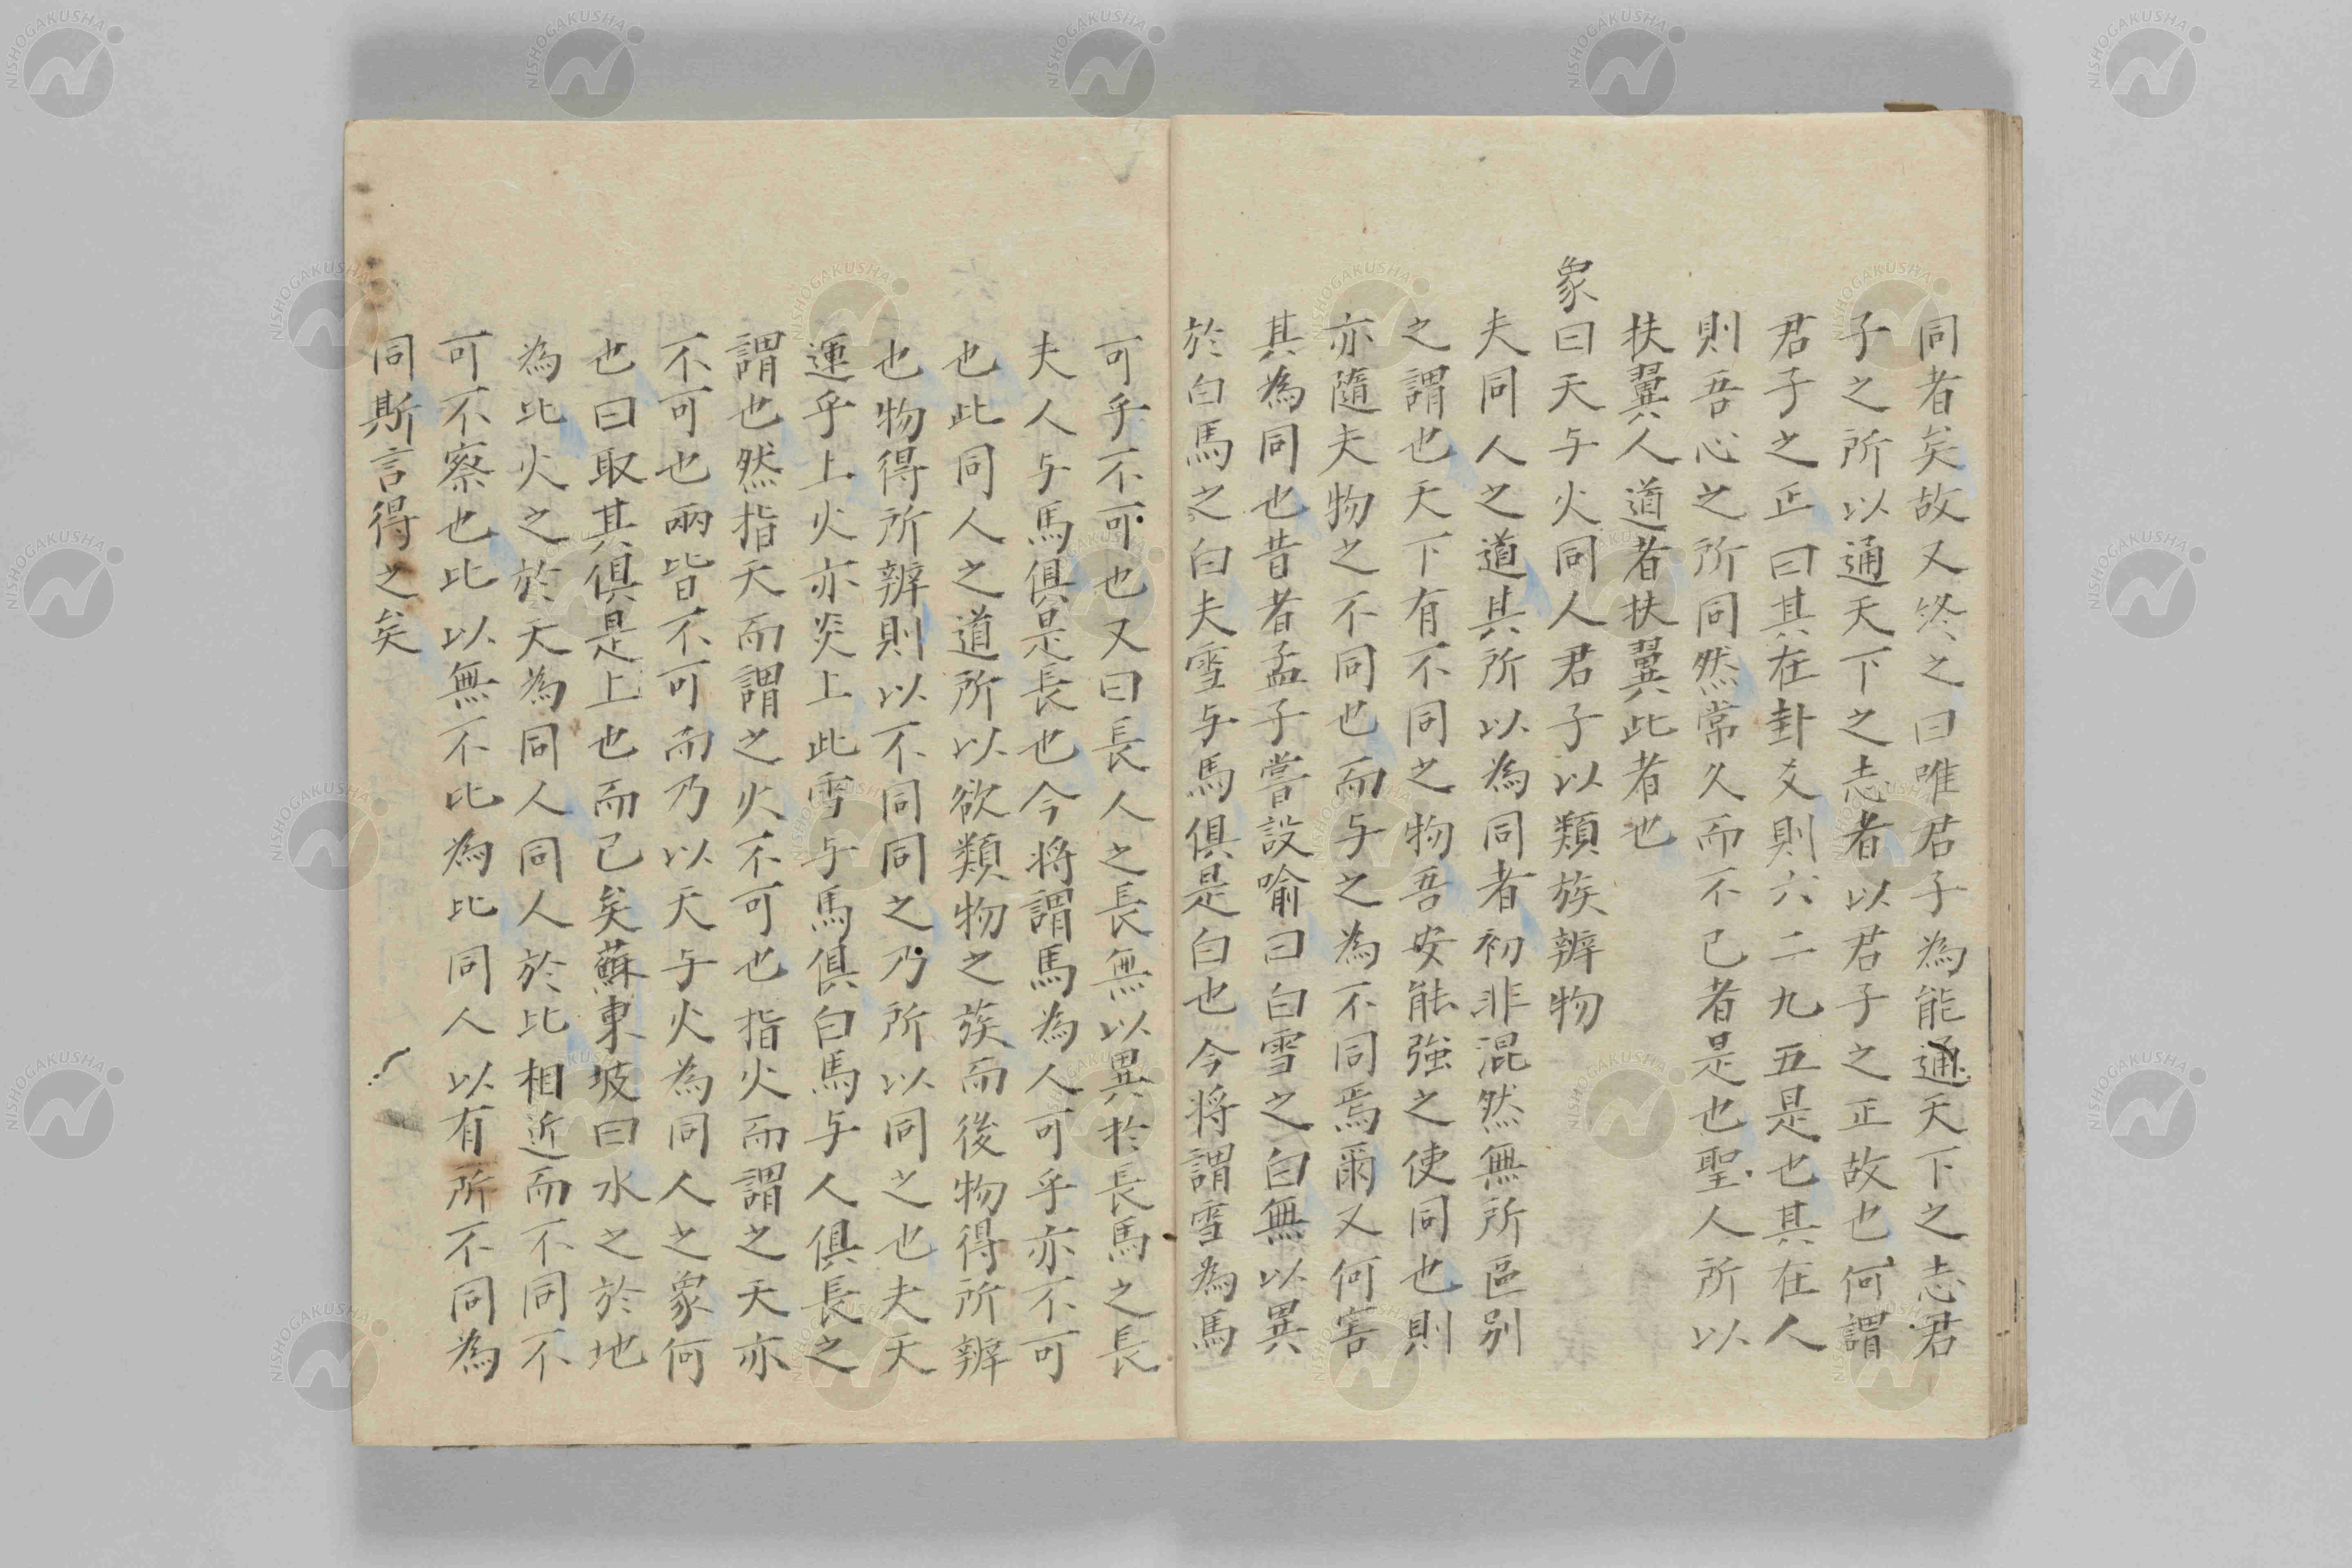 同者矣故又終之曰唯君子為能通天下之志君
子之所以通天下之志者以君子之正故也何謂
君子之正曰其在卦爻則六二九五是也其在人
則吾心之所同然常久而不已者是也聖人所以
扶翼人道者扶翼此者也
象曰天与火同人君子以類族辨物
夫同人之道其所以為同者初非混然無所區别
之謂也天下有不同之物吾安能強之使同也則
亦隨夫物之不同也而与之為不同焉爾又何害
其為同也昔者孟子嘗設喻曰白雪之白無以異
於白馬之白夫雪与馬俱是白也今将謂雪為馬
可乎不可也又曰長人之長無以異於長馬之長
夫人与馬俱是長也今将謂馬為人可乎亦不可
也此同人之道所以欲類物之族而後物得所辨
也物得所辨則以不同同之乃所以同之也夫天
運乎上火亦炎上此雪与馬俱白馬与人俱長之
謂也然指天而謂之火不可也指火而謂之天亦
不可也兩皆不可而乃以天与火為同人之象何
也曰取其俱是上也而已矣蘇東坡曰水之於地
為比火之於天為同人同人於比相近而不同不
可不察也比以無不比為比同人以有所不同為
同斯言得之矣
NISHOGAKUSHA